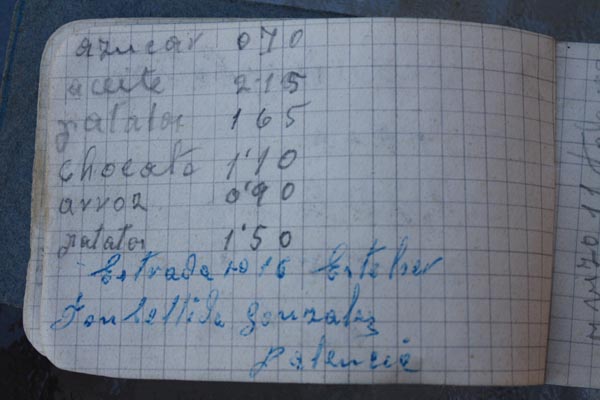 azucar 070
aceite 215
patatas 165
chocate 1'10
arroz 0'90
patatas 1'50
Estrada 16
Fombellida Gonzalez
Palencia